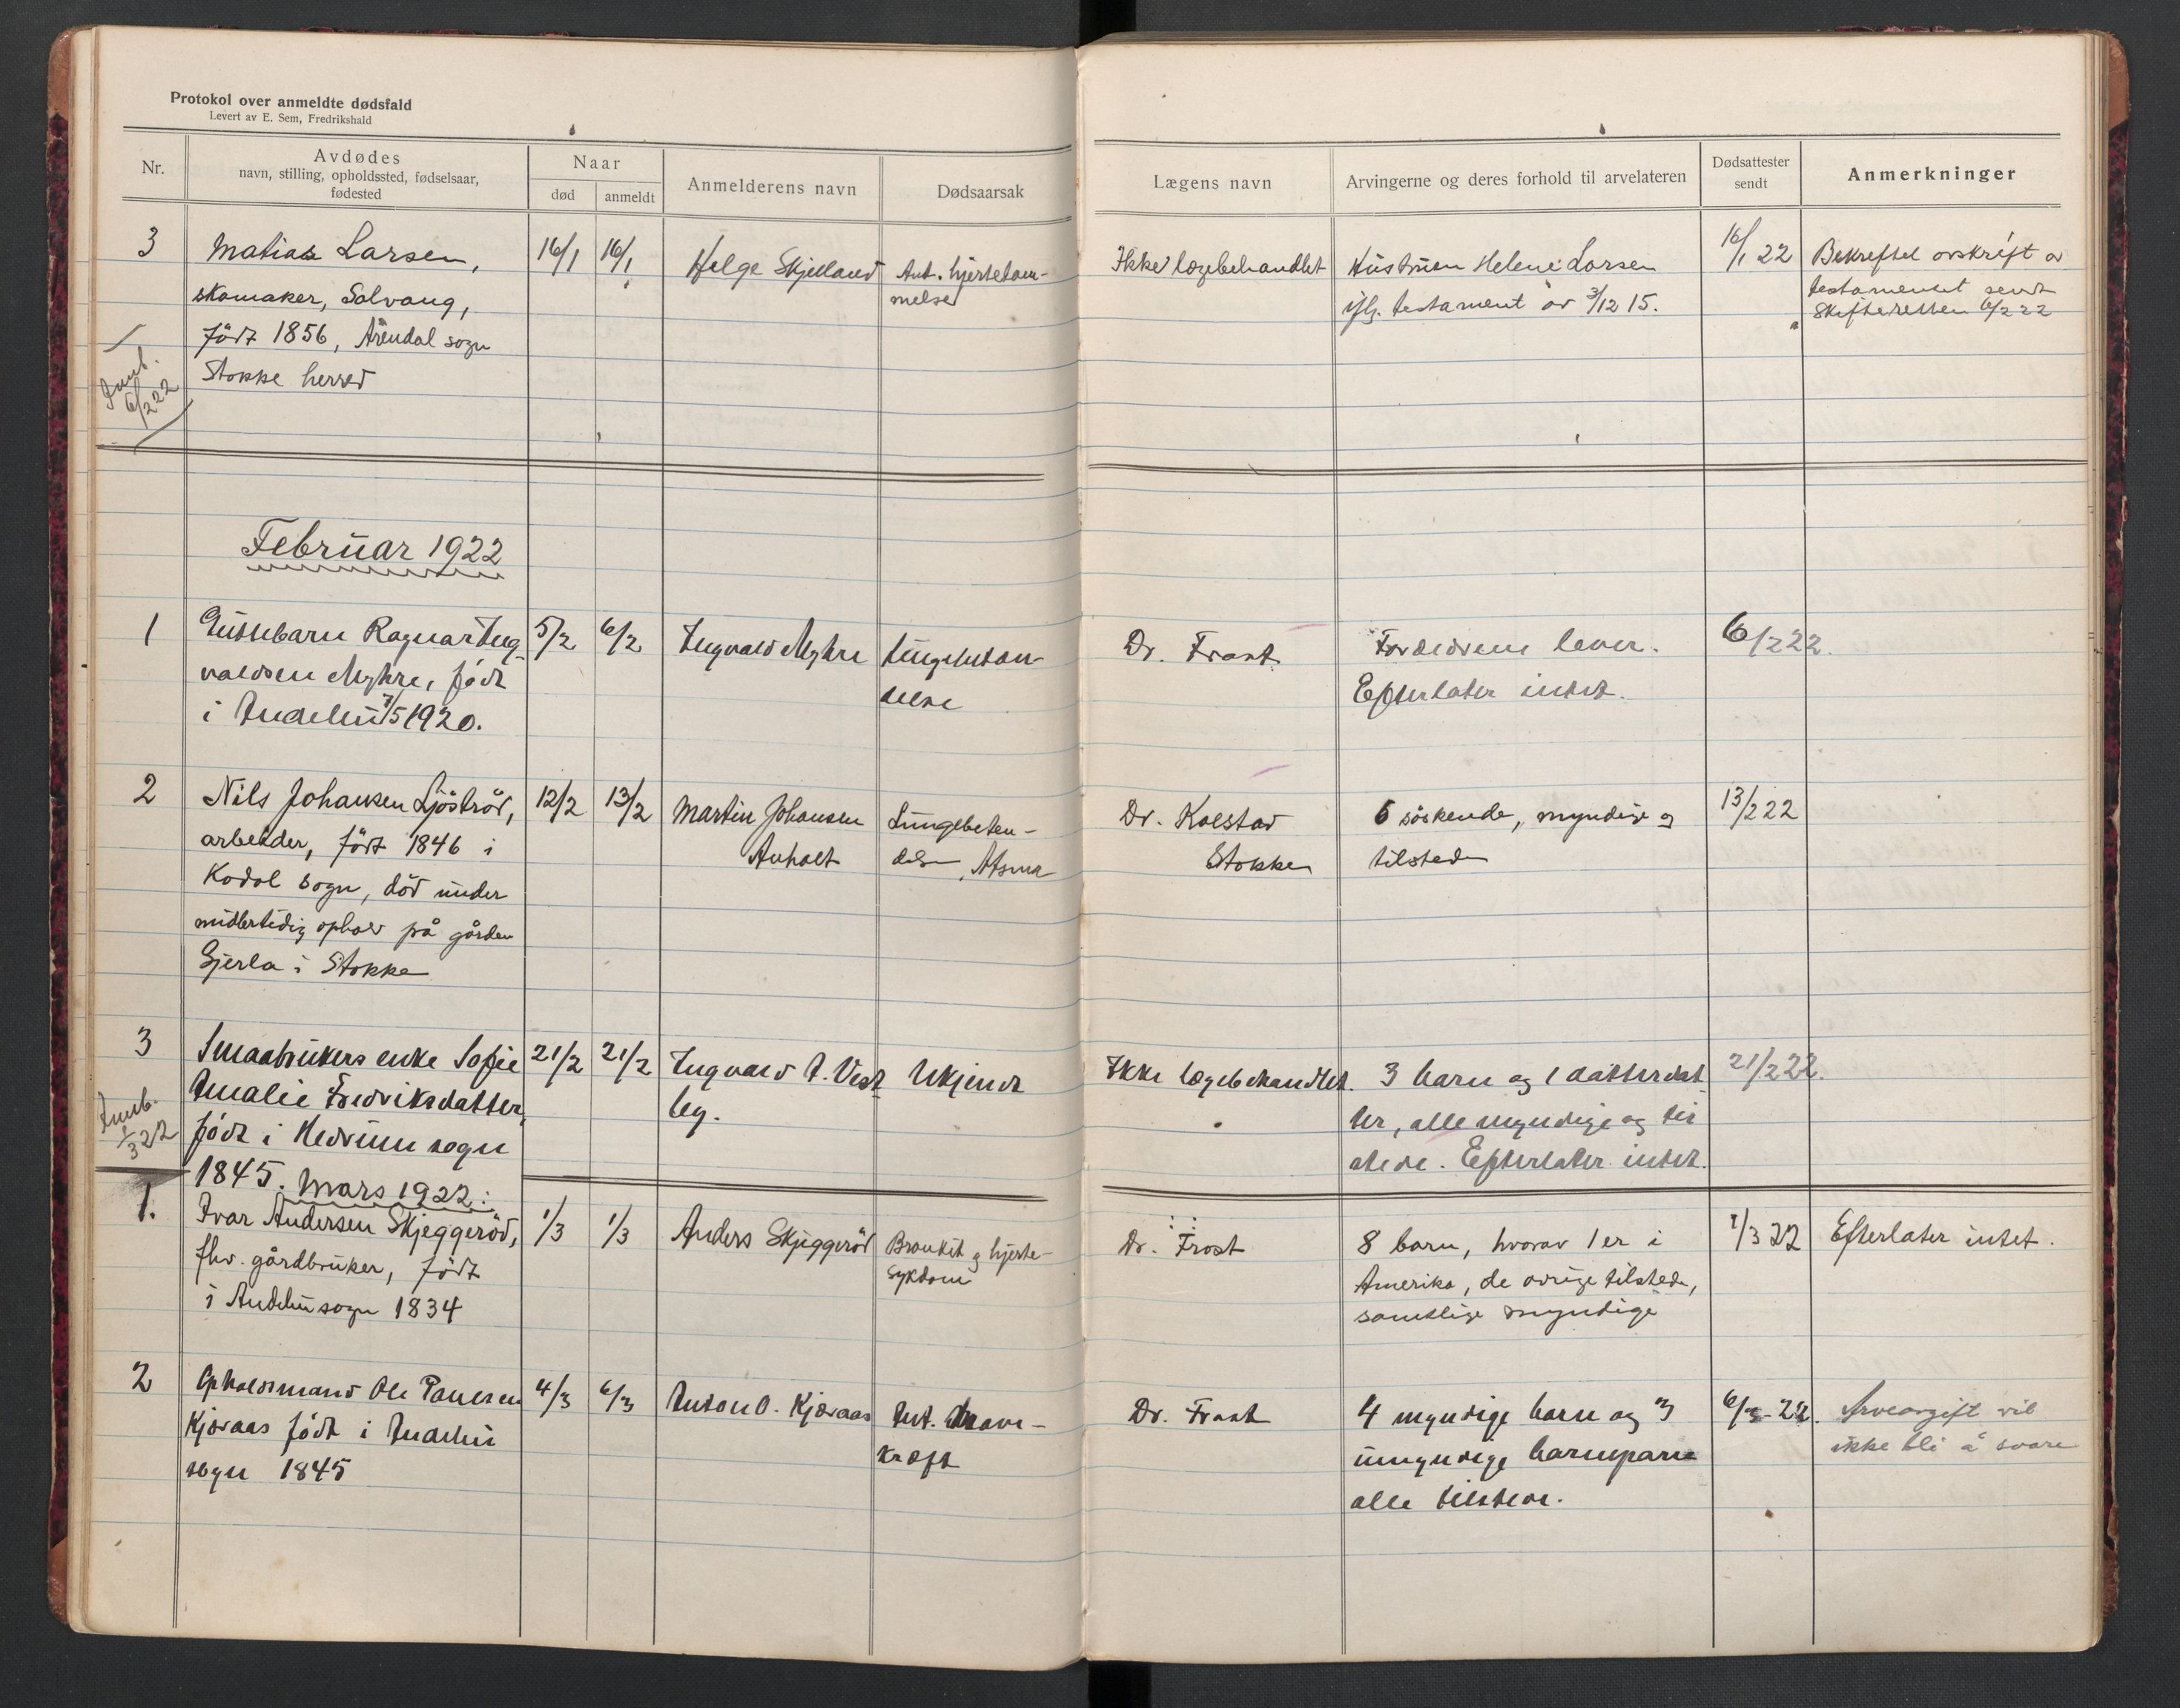 Protokol over anmeldte dødsfald
Levert av E. Sem, Fredrikshald
Nr.
Avdødes
navn, stilling, opholdssted, fødselsaar,
fødested
Naar
død
anmeldt
Anmelderens navn
Dødsaarsak
Lægens navn
Arvingerne og deres forhold til arvelateren
Dødsattester
sendt
Anmerkninger
3
Matias Larsen,
skomaker, Solvang,
født 1856, Arendal sogn
Stokke herred
6/2 22
16/1
16/1
Helge Skjelland
Ant. hjertelam-
melse
Ikke lægebehandlet
Hustruen Helene Larsen
iflg. testament av 3/12 15.
16/1 22
Bekreftet avskrift av
testamentet sendt
Skifteretten 6/2 22
Februar 1922
1
Gutebarn Ragnar Ing-
valdsen Myhre, født
i Andebu 7/5 1920.
5/2
6/2
Ingvald Myhre
Lungebeten-
delse
Dr. Frost
Foreldrene lever.
Efterlater intet.
6/2 22.
2
Nils Johansen Sjöströd,
arbeider, født 1846 i
Kodal sogn, död under
midlertidig ophold på gården
Gjerla i Stokke
12/2
13/2
Martin Johansen
Anholt
Lungebeten-
delse, Astma
Dr. Kolstad
Stokke
6 söskende, myndige og
tilstede
13/2 22
3
Smaabrukers enke Sofie
Amalie Fredriksdatter,
født i Hedrum sogn
1845.
1/3 22
21/2
21/2
Ingvald A. Vest
by.
Ukjendt
Ikke lægebehandlet.
3 barn og 1 datterdat
ter, alle myndige og til
stede. Efterlater intet.
21/2 22.
Mars 1922:
1.
Ivar Andersen Skjeggeröd,
fhv. gårdbruker, født
i Andebu sogn 1834
1/3
1/3
Anders Skjeggeröd
Bronkit og hjerte-
sykdom
Dr. Frost
8 barn, hvorav 1 er i
Amerika, de øvrige tilstede,
samtlige myndige
1/3 22
Efterlater intet.
2
Opholdsmand Ole Paulsen
Kjøraas født i Andebu
sogn 1845
4/3
6/3
Anton O. Kjøraas
Ant. Mave-
kræft
Dr. Frost
4 myndige barn og 3
umyndige barnebarn
alle tilstede.
6/3 - 22.
Arveavgift vil
ikke bli å svare